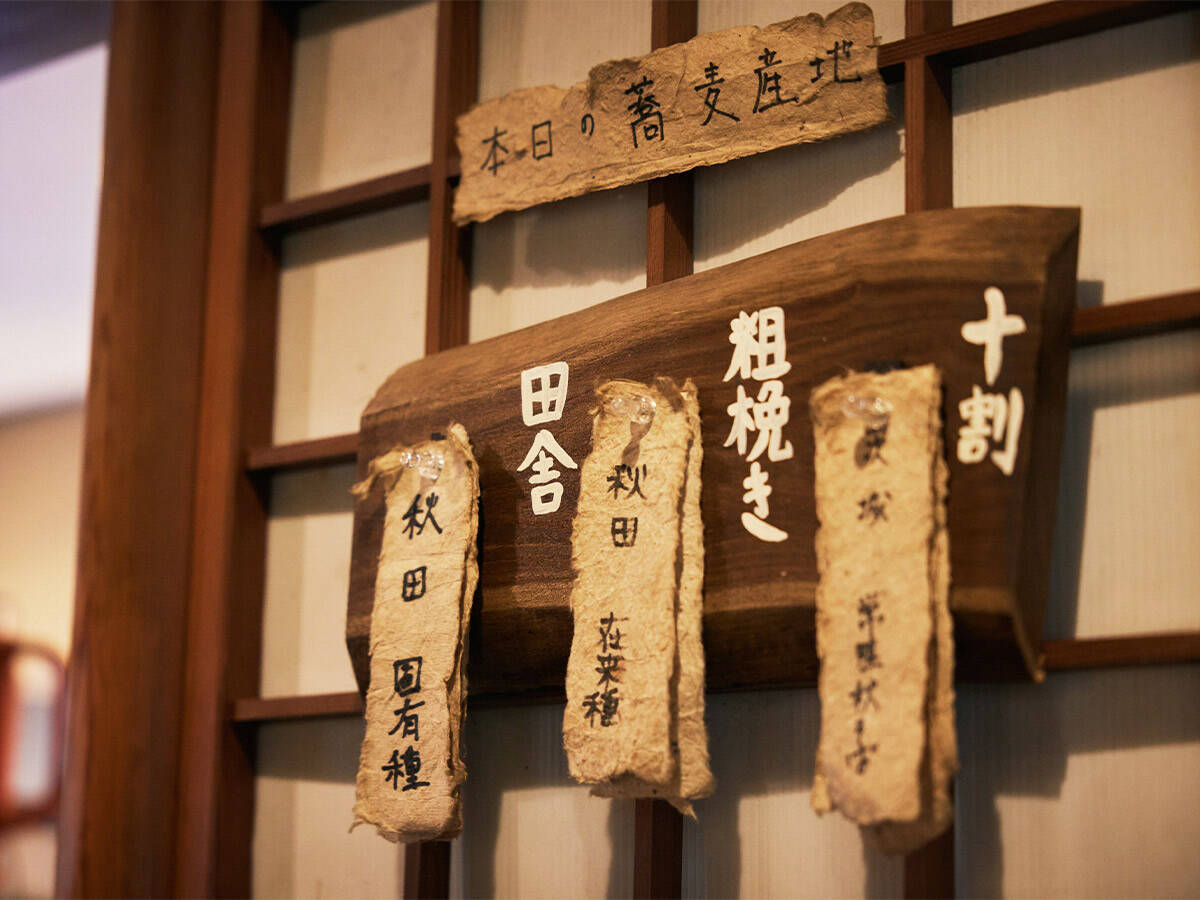 本日の蕎麦産地
十割
茨城 常陸秋そば
粗挽き
秋田 在来種
田舎
秋田 固有種